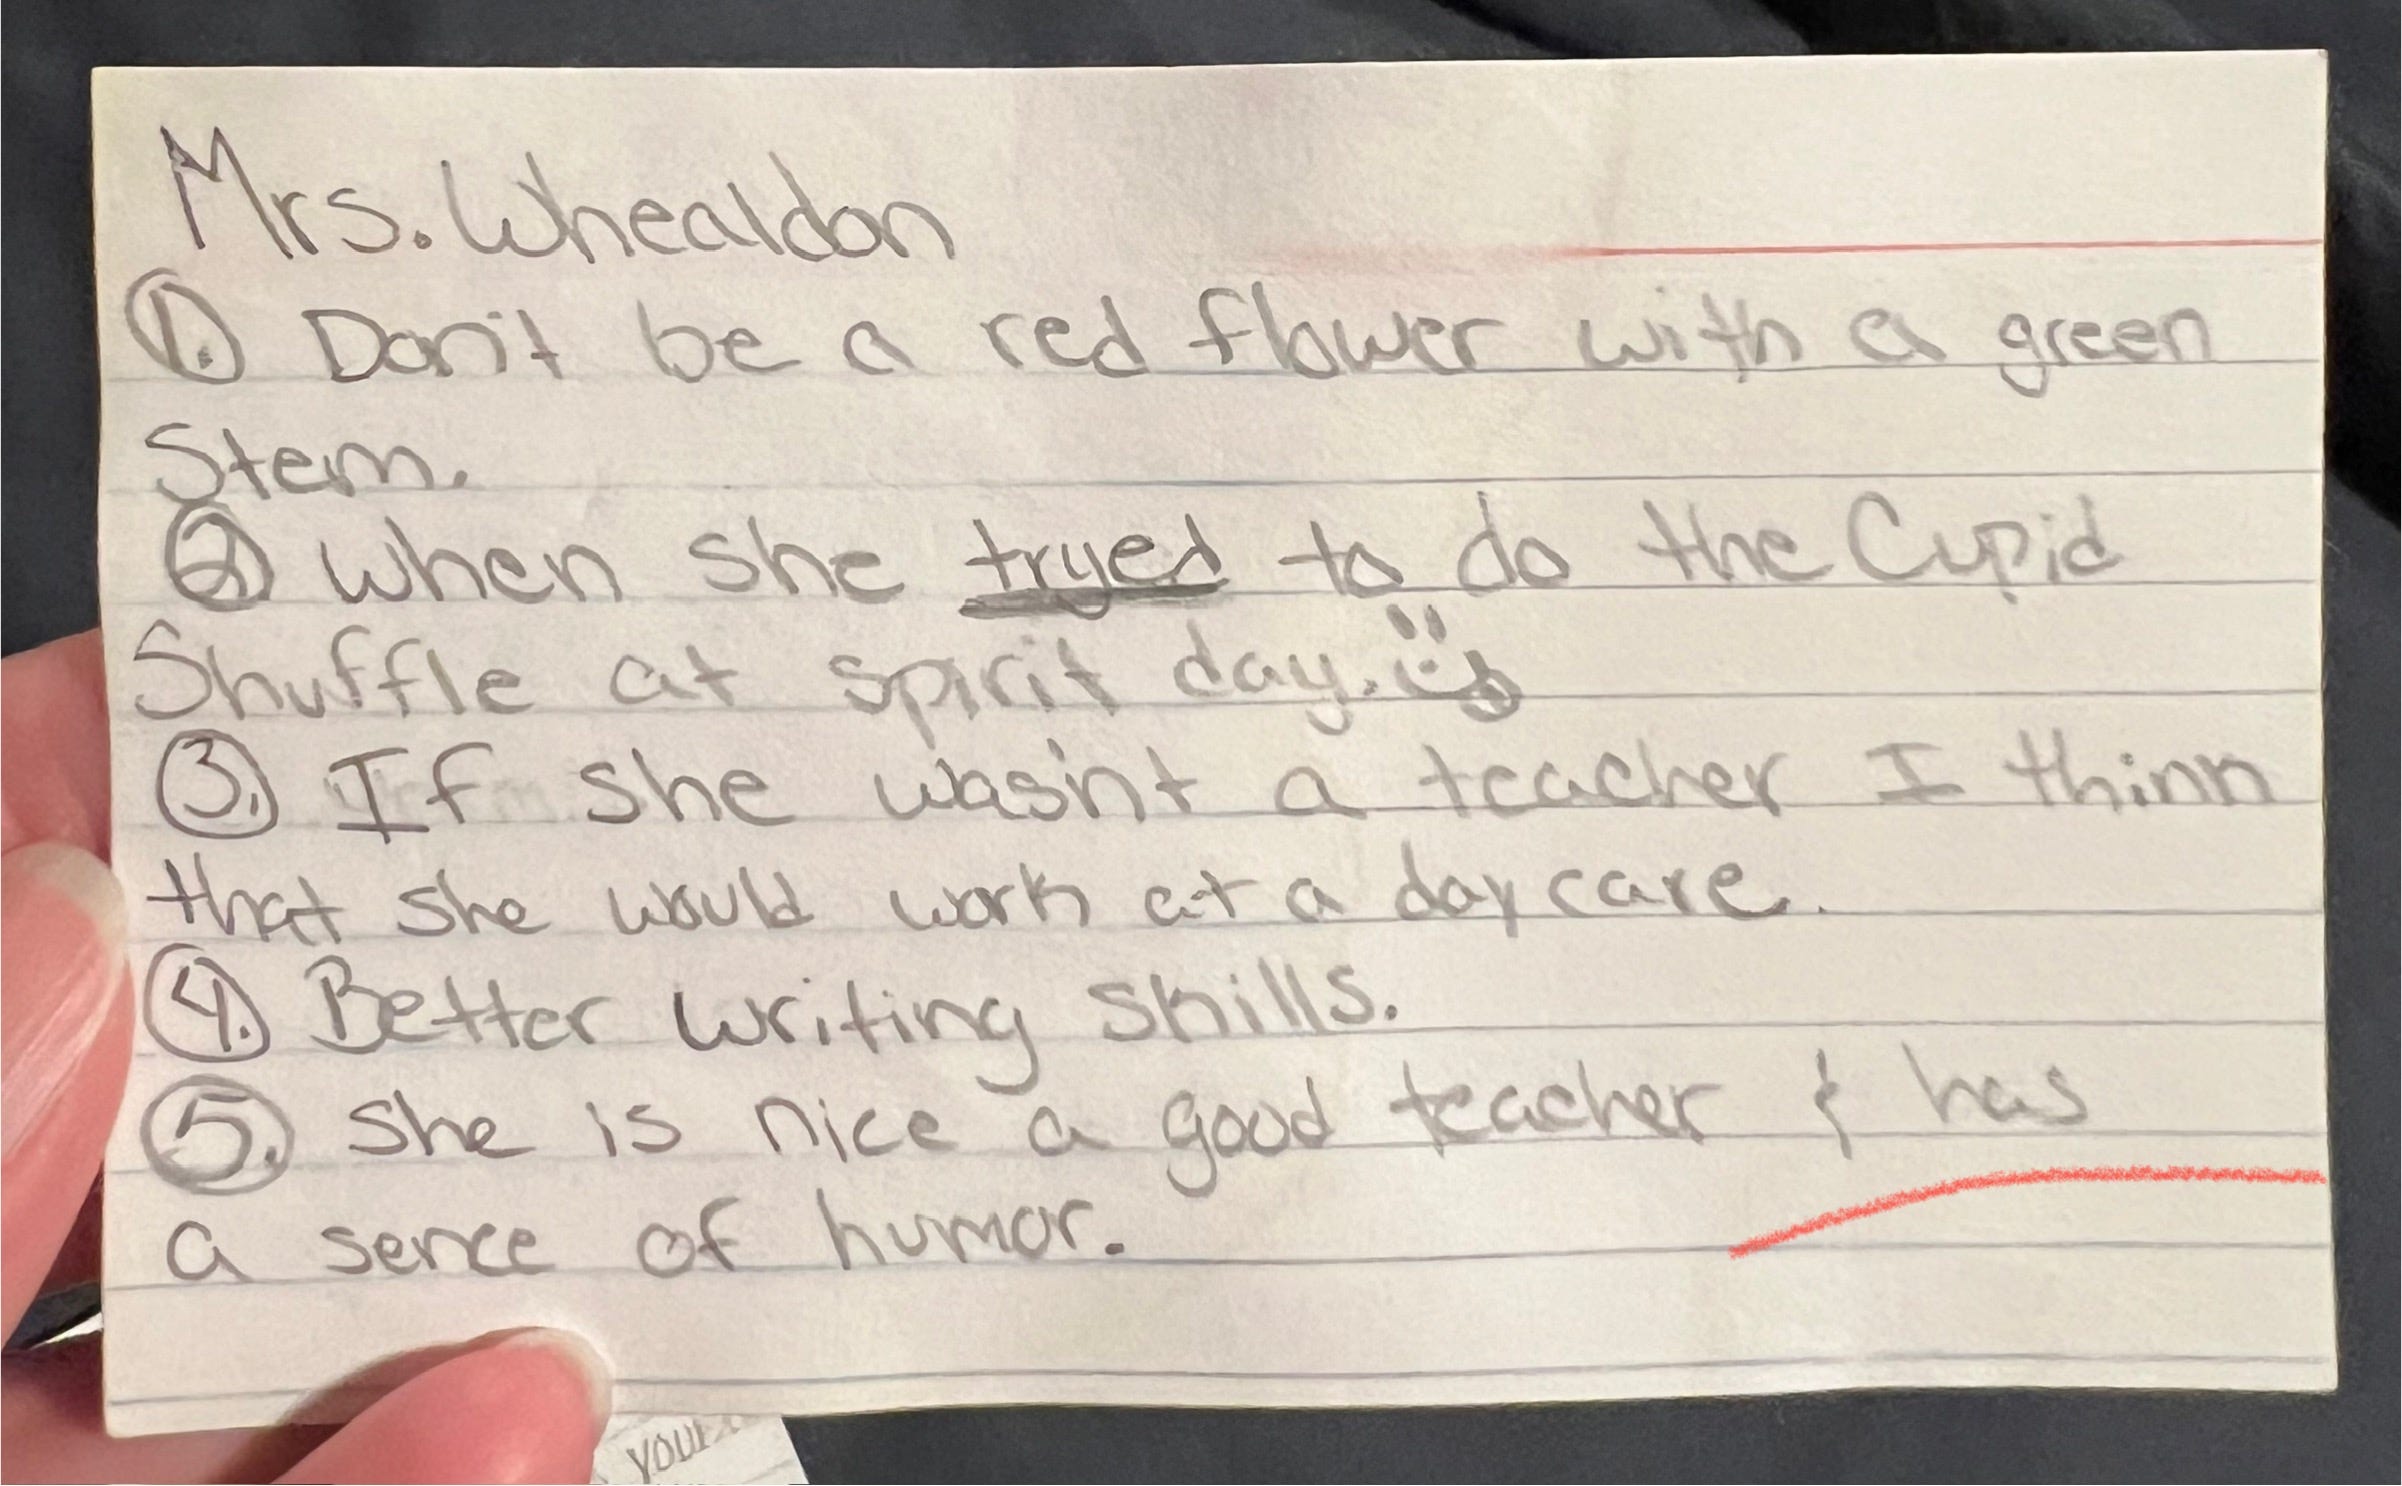 Mrs. Whealdon
1. Don't be a red flower with a green
Stem.
2. When she tryed to do the Cupid
Shuffle at spirit day.
3. If she wasn't a teacher I think
that she would work at a day care.
4. Better writing skills.
5. She is nice a good teacher & has
a sence of humor.
your